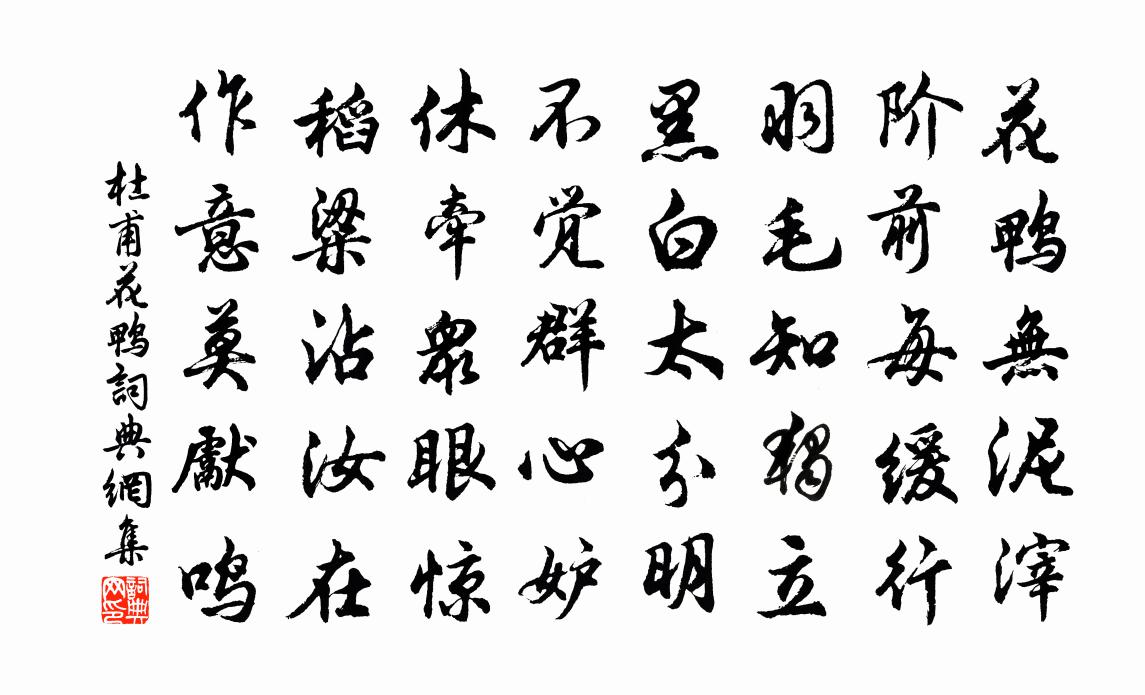 花鴨無泥滓
阶前每缓行
羽毛知独立
黑白太分明
不觉群心妒
休牵衆眼惊
稻粱沾汝在
作意莫獻鸣
杜甫花鴨詞典網集
詞典